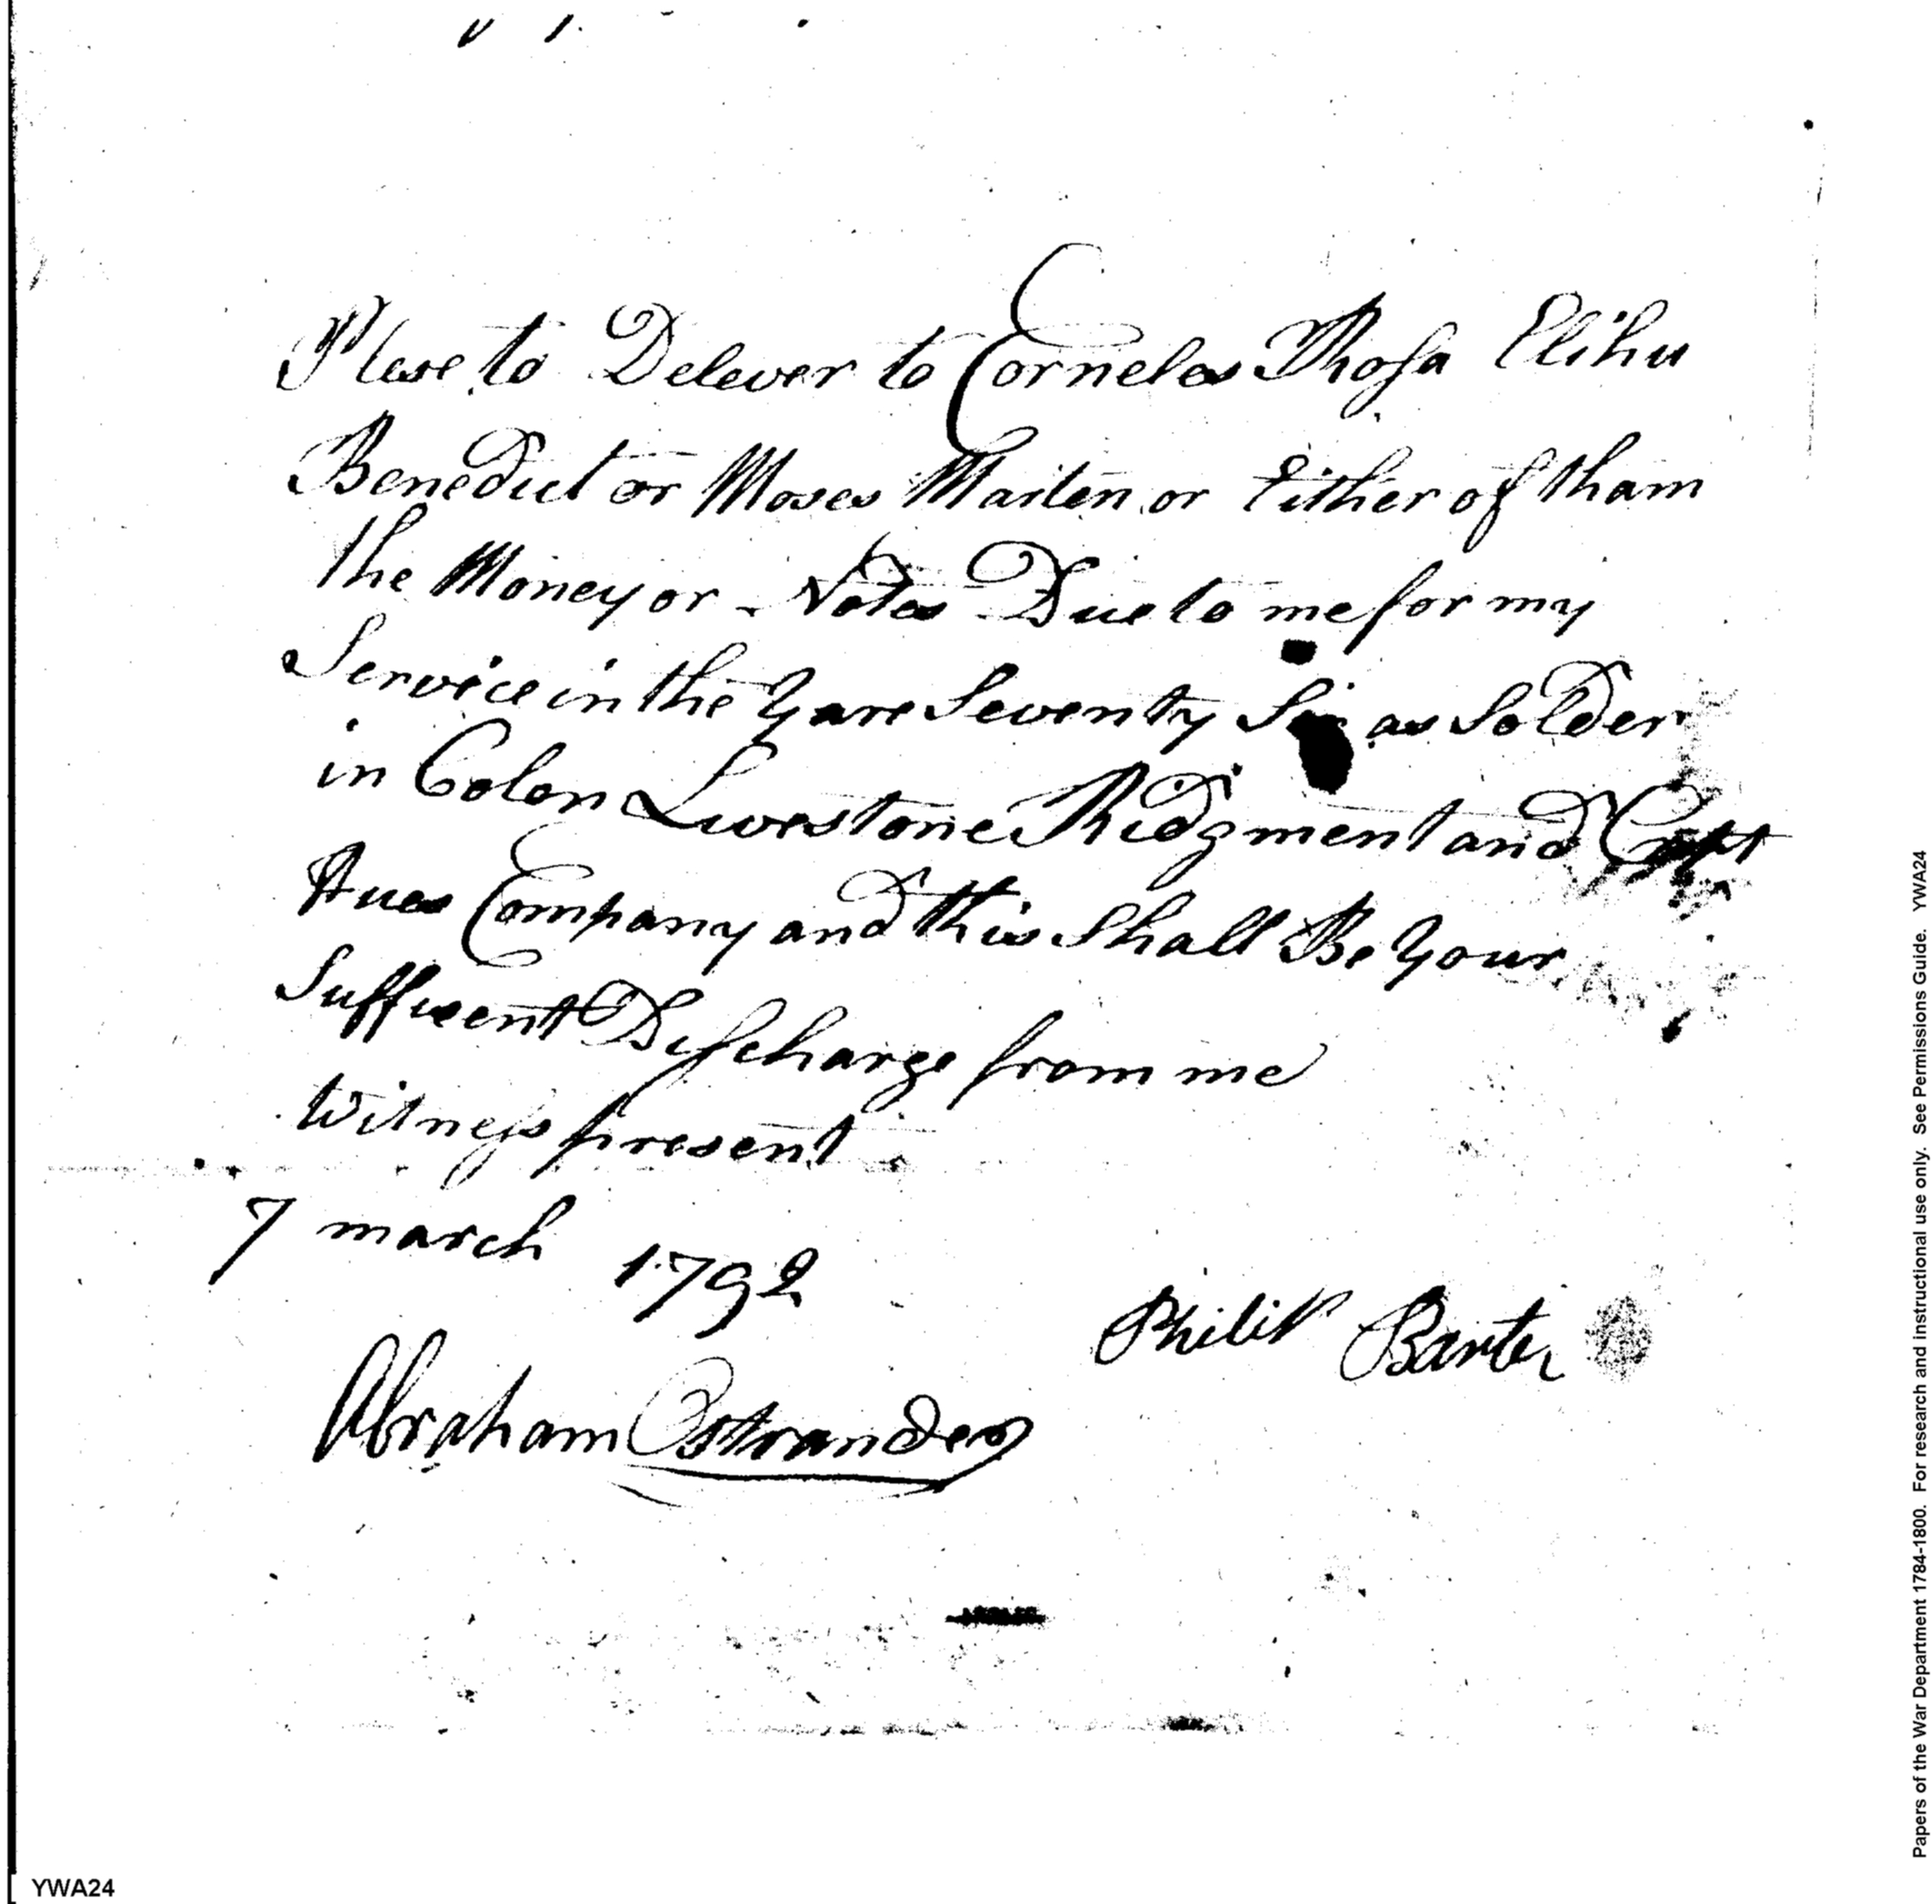 Plese to Delever to Cornelas Rhosa Elihu
Benedict or Moses Marten or Either of tham
the Money or Notes Due to me for my
Service in the Yare Seventy Six as Solder
in Colon Livestone Ridgment and Capt
Hues Company and this Shall Be Your
Suffucent Discharge from me
Witness present
7 march 1792
Philip Baxter
Abraham Ostrander
YWA24
Papers of the War Department 1784-1800. For research and instructional use only. See Permissions Guide. YWA24